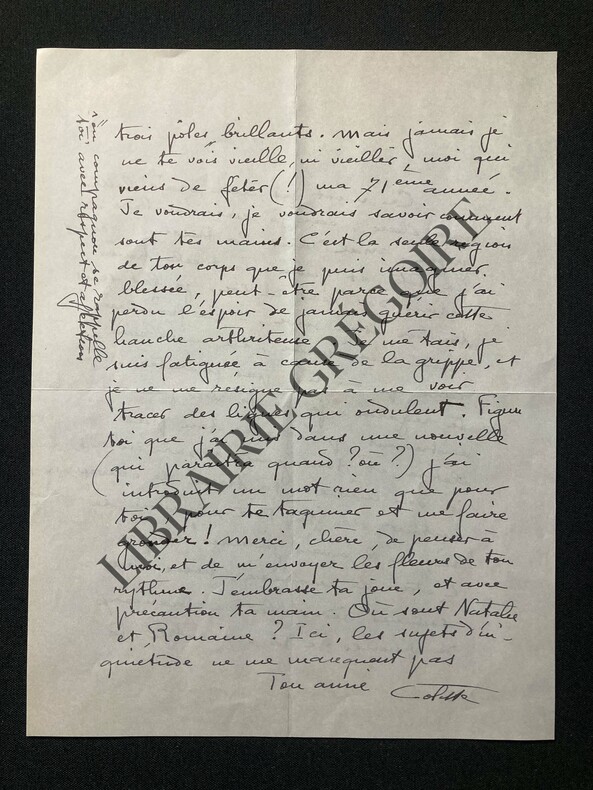 trois pôles brillants. Mais jamais je
ne te vois vieille, ni vieillir, moi qui
viens de fêter (!) ma 71ème année.
Je voudrais, je voudrais savoir comment
sont tes mains. C'est la seule région
de ton corps que je puis imaginer
blessée, peut-être parce que j'ai
perdu l'espoir de jamais guérir cette
hanche arthritense je me tais, je
suis fatiguée à cause de la grippe, et
je ne me resigne pas à me voir
tracer des lignes qui ondulent. Figure
toi que j'ai mis dans une nouvelle
(qui paraîtra quand ? où ?) j'ai
introduit un mot rien que pour
toi, pour te taquiner et me faire
gronder ! Merci, chère, de penser à
moi, et de m'envoyer les fleurs de ton
rythme. J'embrasse ta joue, et avec
précaution ta main. Où sont Natalie
et Romaine ? Ici, les sujets d'in-
quiétude ne me manquent pas
Ton amie Colette
mon compagnon se rappelle
toi avec respect et affection
LIBRAIRIE GRÉGOIRE